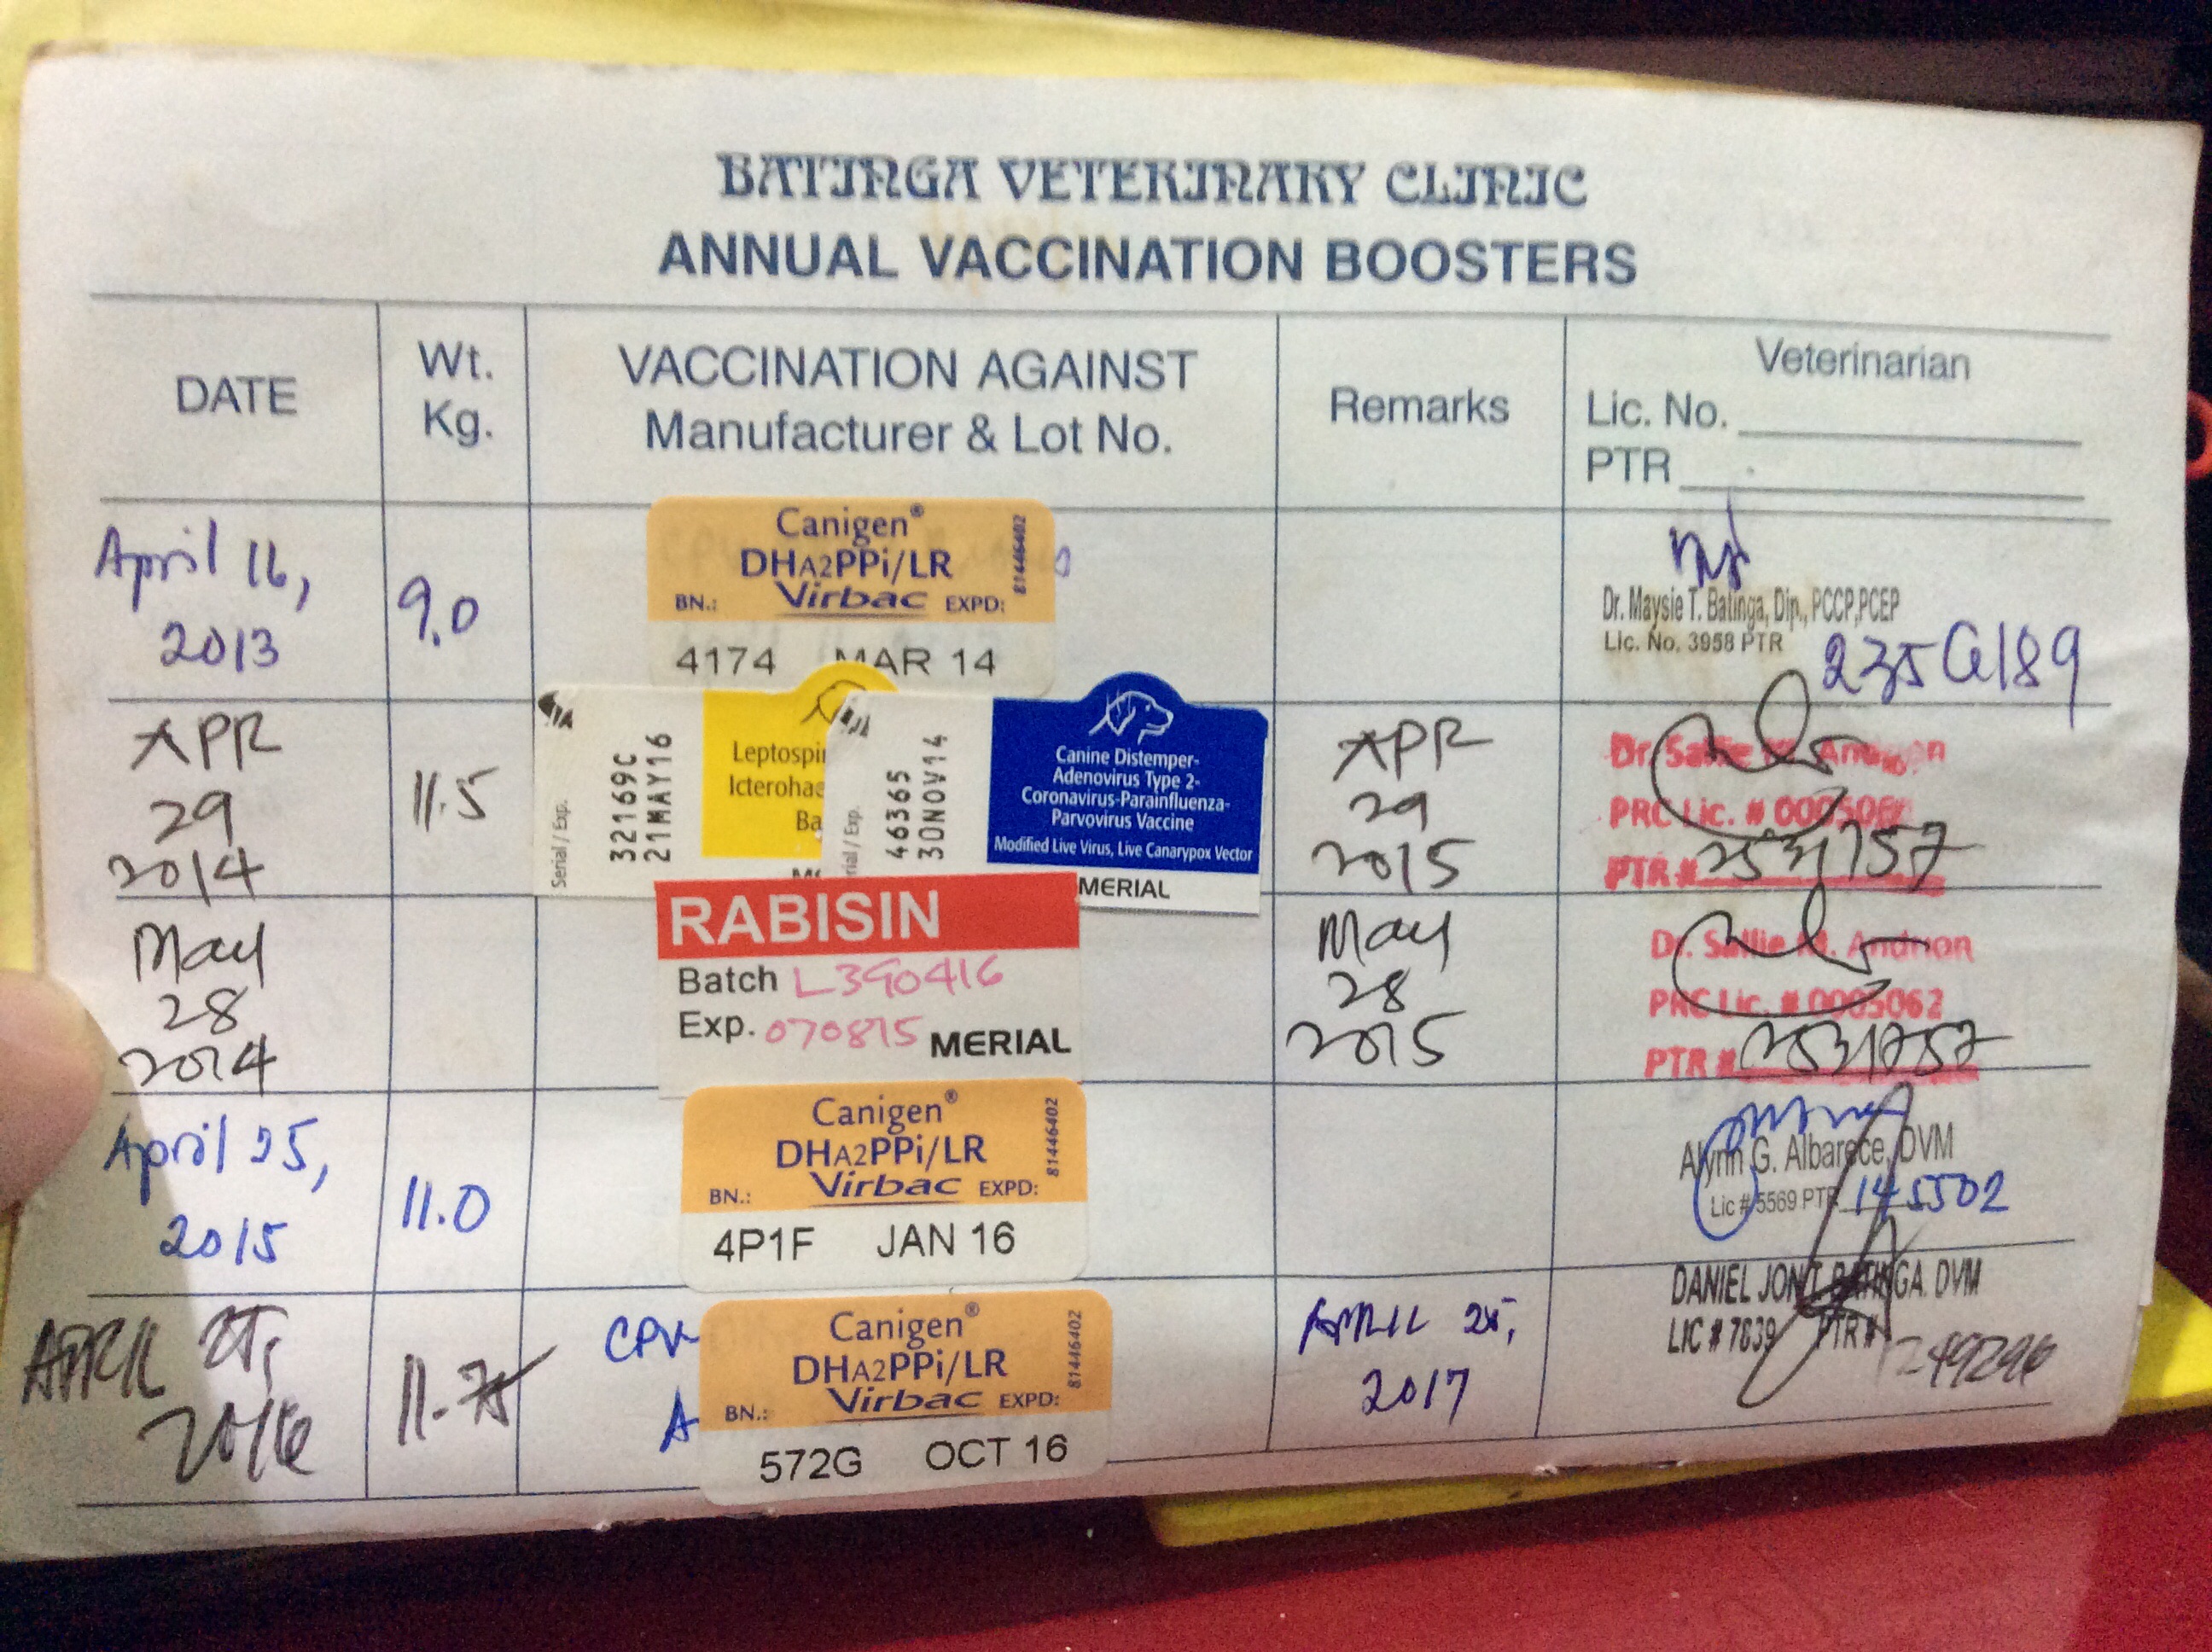 BATINGA VETERINARY CLINIC
ANNUAL VACCINATION BOOSTERS
DATE
Wt.
Kg.
VACCINATION AGAINST
Manufacturer & Lot No.
Remarks
Veterinarian
Lic. No.
PTR
April 16,
2013
9.0
Canigen®
DHA2PPi/LR
Virbac
BN.: EXPD:
81446402
4174 MAR 14
Dr. Maysie T. Batinga, Dip., PCCP,PCEP
Lic. No. 3958 PTR
APR
29
2014
11.5
Serial / Exp.
32169C
21MAY16
Leptospi
Icterohae
Ba
rial / Exp.
46365
30NOV14
Canine Distemper-
Adenovirus Type 2-
Coronavirus-Parainfluenza-
Parvovirus Vaccine
Modified Live Virus, Live Canarypox Vector
MERIAL
APR
29
2015
Dr. Sallie
PRC Lic. #
PTR #
May
28
2014
RABISIN
Batch L390416
Exp. 070815 MERIAL
May
28
2015
Dr. Sallie M.
PRC Lic. # 0005062
PTR #
April 25,
2015
11.0
Canigen®
DHA2PPi/LR
Virbac
BN.: EXPD:
81446402
4P1F JAN 16
Alynn G. Albarece, DVM
Lic # 5569 PTR 145502
APRIL
2016
11.75
CPV
A
Canigen®
DHA2PPi/LR
Virbac
BN.: EXPD:
81446402
572G OCT 16
APRIL 25,
2017
DANIEL JON T. BATINGA. DVM
LIC # 7639 PTR #